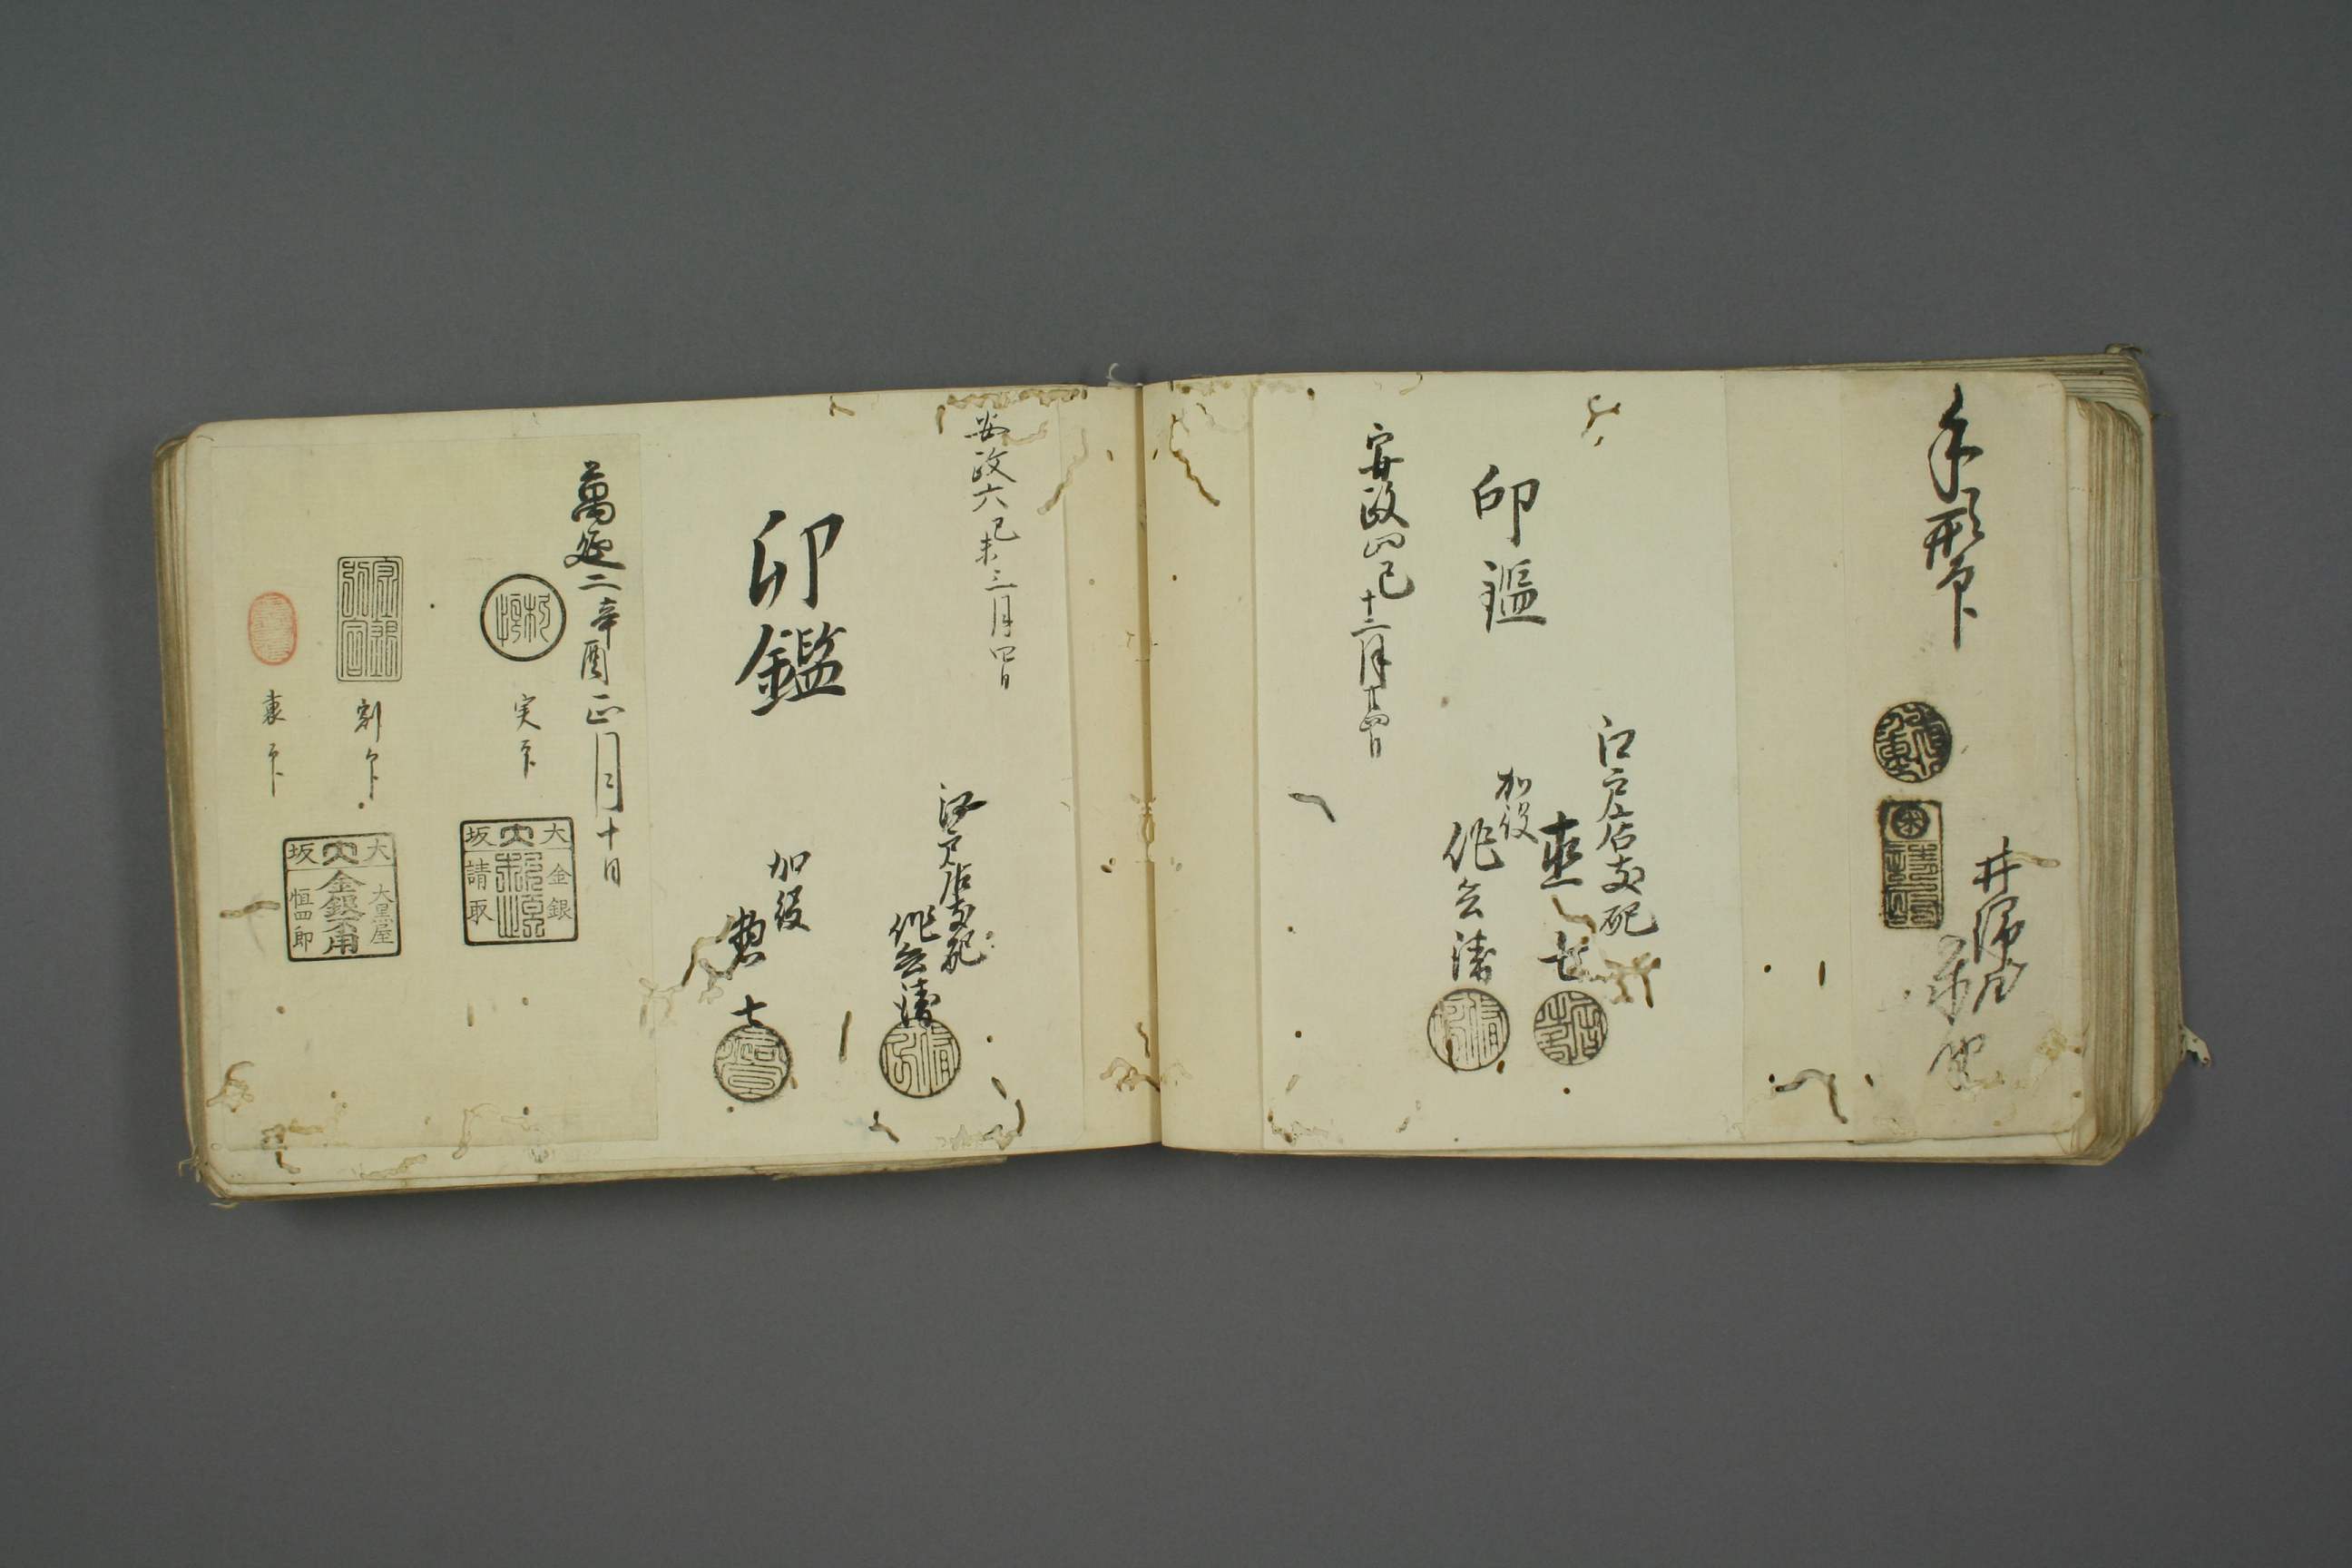 手形印
井筒屋
印鑑
江戸店支配
加役
作兵衛
安政四巳十二月廿四日
安政六己未三月四日
江戸店支配
作兵衛
印鑑
加役
惣七
萬延二辛酉正月十日
実印
大坂
金銀
請取
割印
大坂
大黒屋
金銀不用
恒四郎
裏印